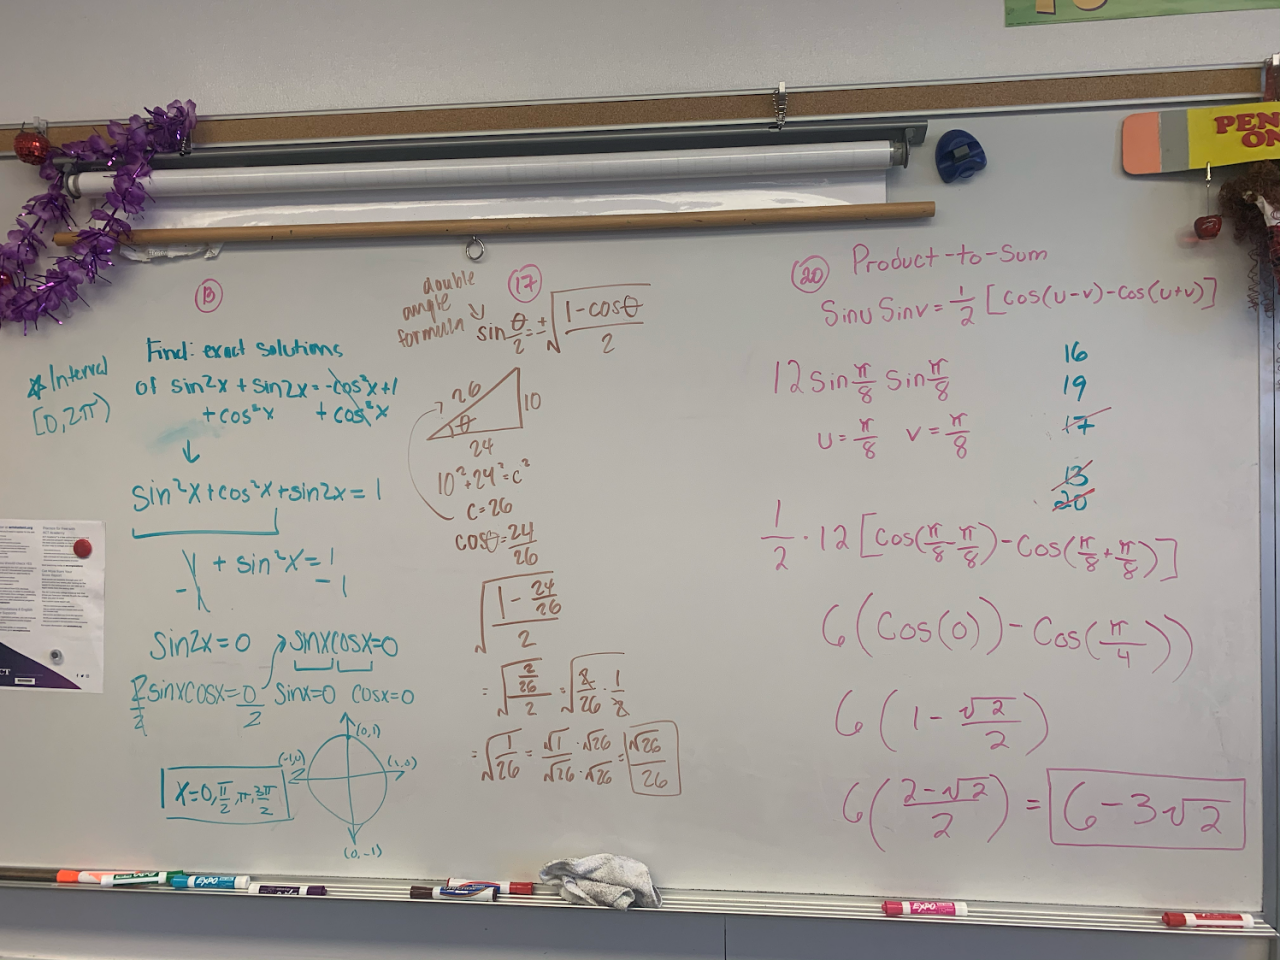 13
Find: exact solutions
of sin2x + sin2x = -cos²x+1
+cos²x +cos²x
* Interval
[0, 2π)
↓
sin²x+cos²x+sin2x = 1
1 + sin²x = 1
-1 -1
Sin2x = 0 → sinxcosx=0
2sinxcosx = 0 sinx=0 cosx=0
2 2
(0,1)
(-1,0) (1,0)
(0,-1)
x=0, π/2, π, 3π/2
17
double
angle
formula ↓ sin θ/2 = ±√((1-cosθ)/2)
26
10
θ
24
10²+24²=c²
c=26
cosθ=24/26
√((1-24/26)/2)
= √((2/26)/2) = √(2/26 · 1/2)
= √(1/26) = √1/√26 · √26/√26 = √26/26
20 Product-to-Sum
Sinu Sinv = 1/2 [cos(u-v) - cos(u+v)]
12 Sin π/8 Sin π/8
u = π/8 v = π/8
16
19
17
13
20
1/2 · 12 [Cos(π/8 - π/8) - Cos(π/8 + π/8)]
6(Cos(0)) - Cos(π/4))
6(1 - √2/2)
6((2-√2)/2) = 6-3√2
PEN
ON
EXPO
EXPO